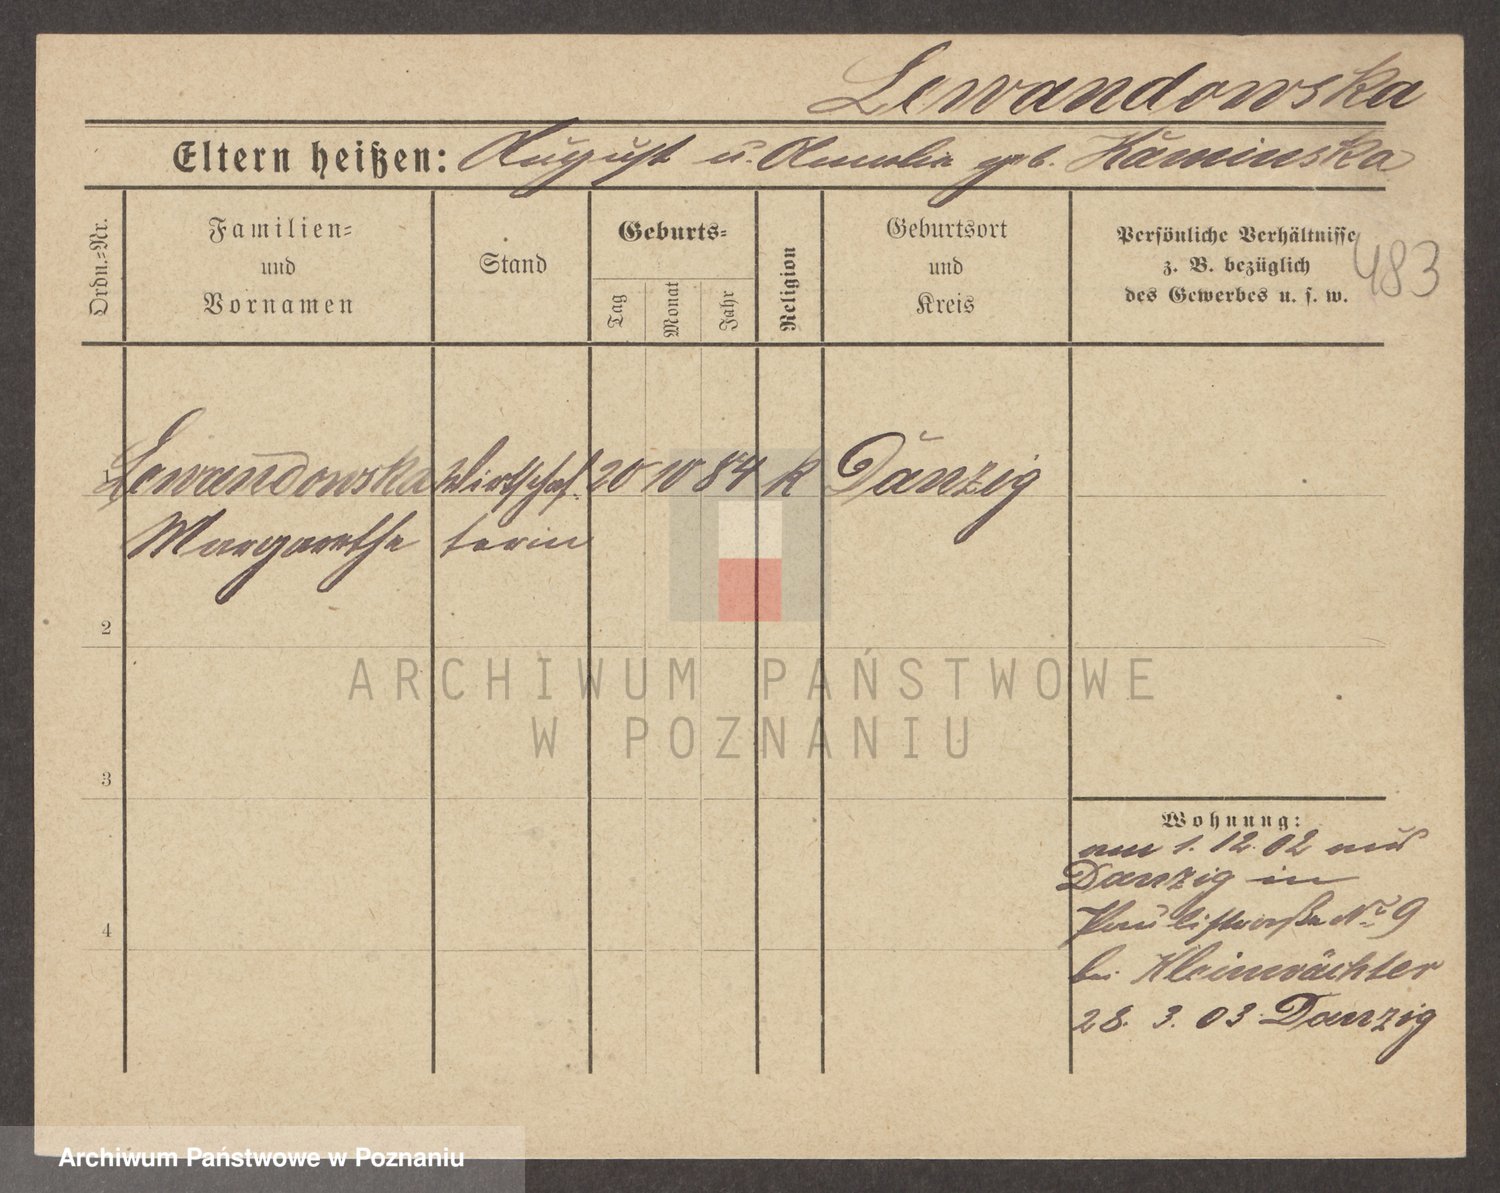 Lewandowska
Eltern heißen: August u. Amalie geb. Kaminska
Ordn.-Nr.
Familien-
und
Vornamen
Stand
Geburts-
Tag
Monat
Jahr
Religion
Geburtsort
und
Kreis
Persönliche Verhältnisse
z. B. bezüglich
des Gewerbes u. s. w.
483
1 Lewandowska Wirtschaf- 20 10 84 k Danzig
Margarethe terin
2
3
4
Wohnung:
am 1. 12. 02 aus
Danzig in
Paulistraße No 9
bei Kleinwächter
28. 3. 03 Danzig
ARCHIWUM PAŃSTWOWE
W POZNANIU
Archiwum Państwowe w Poznaniu